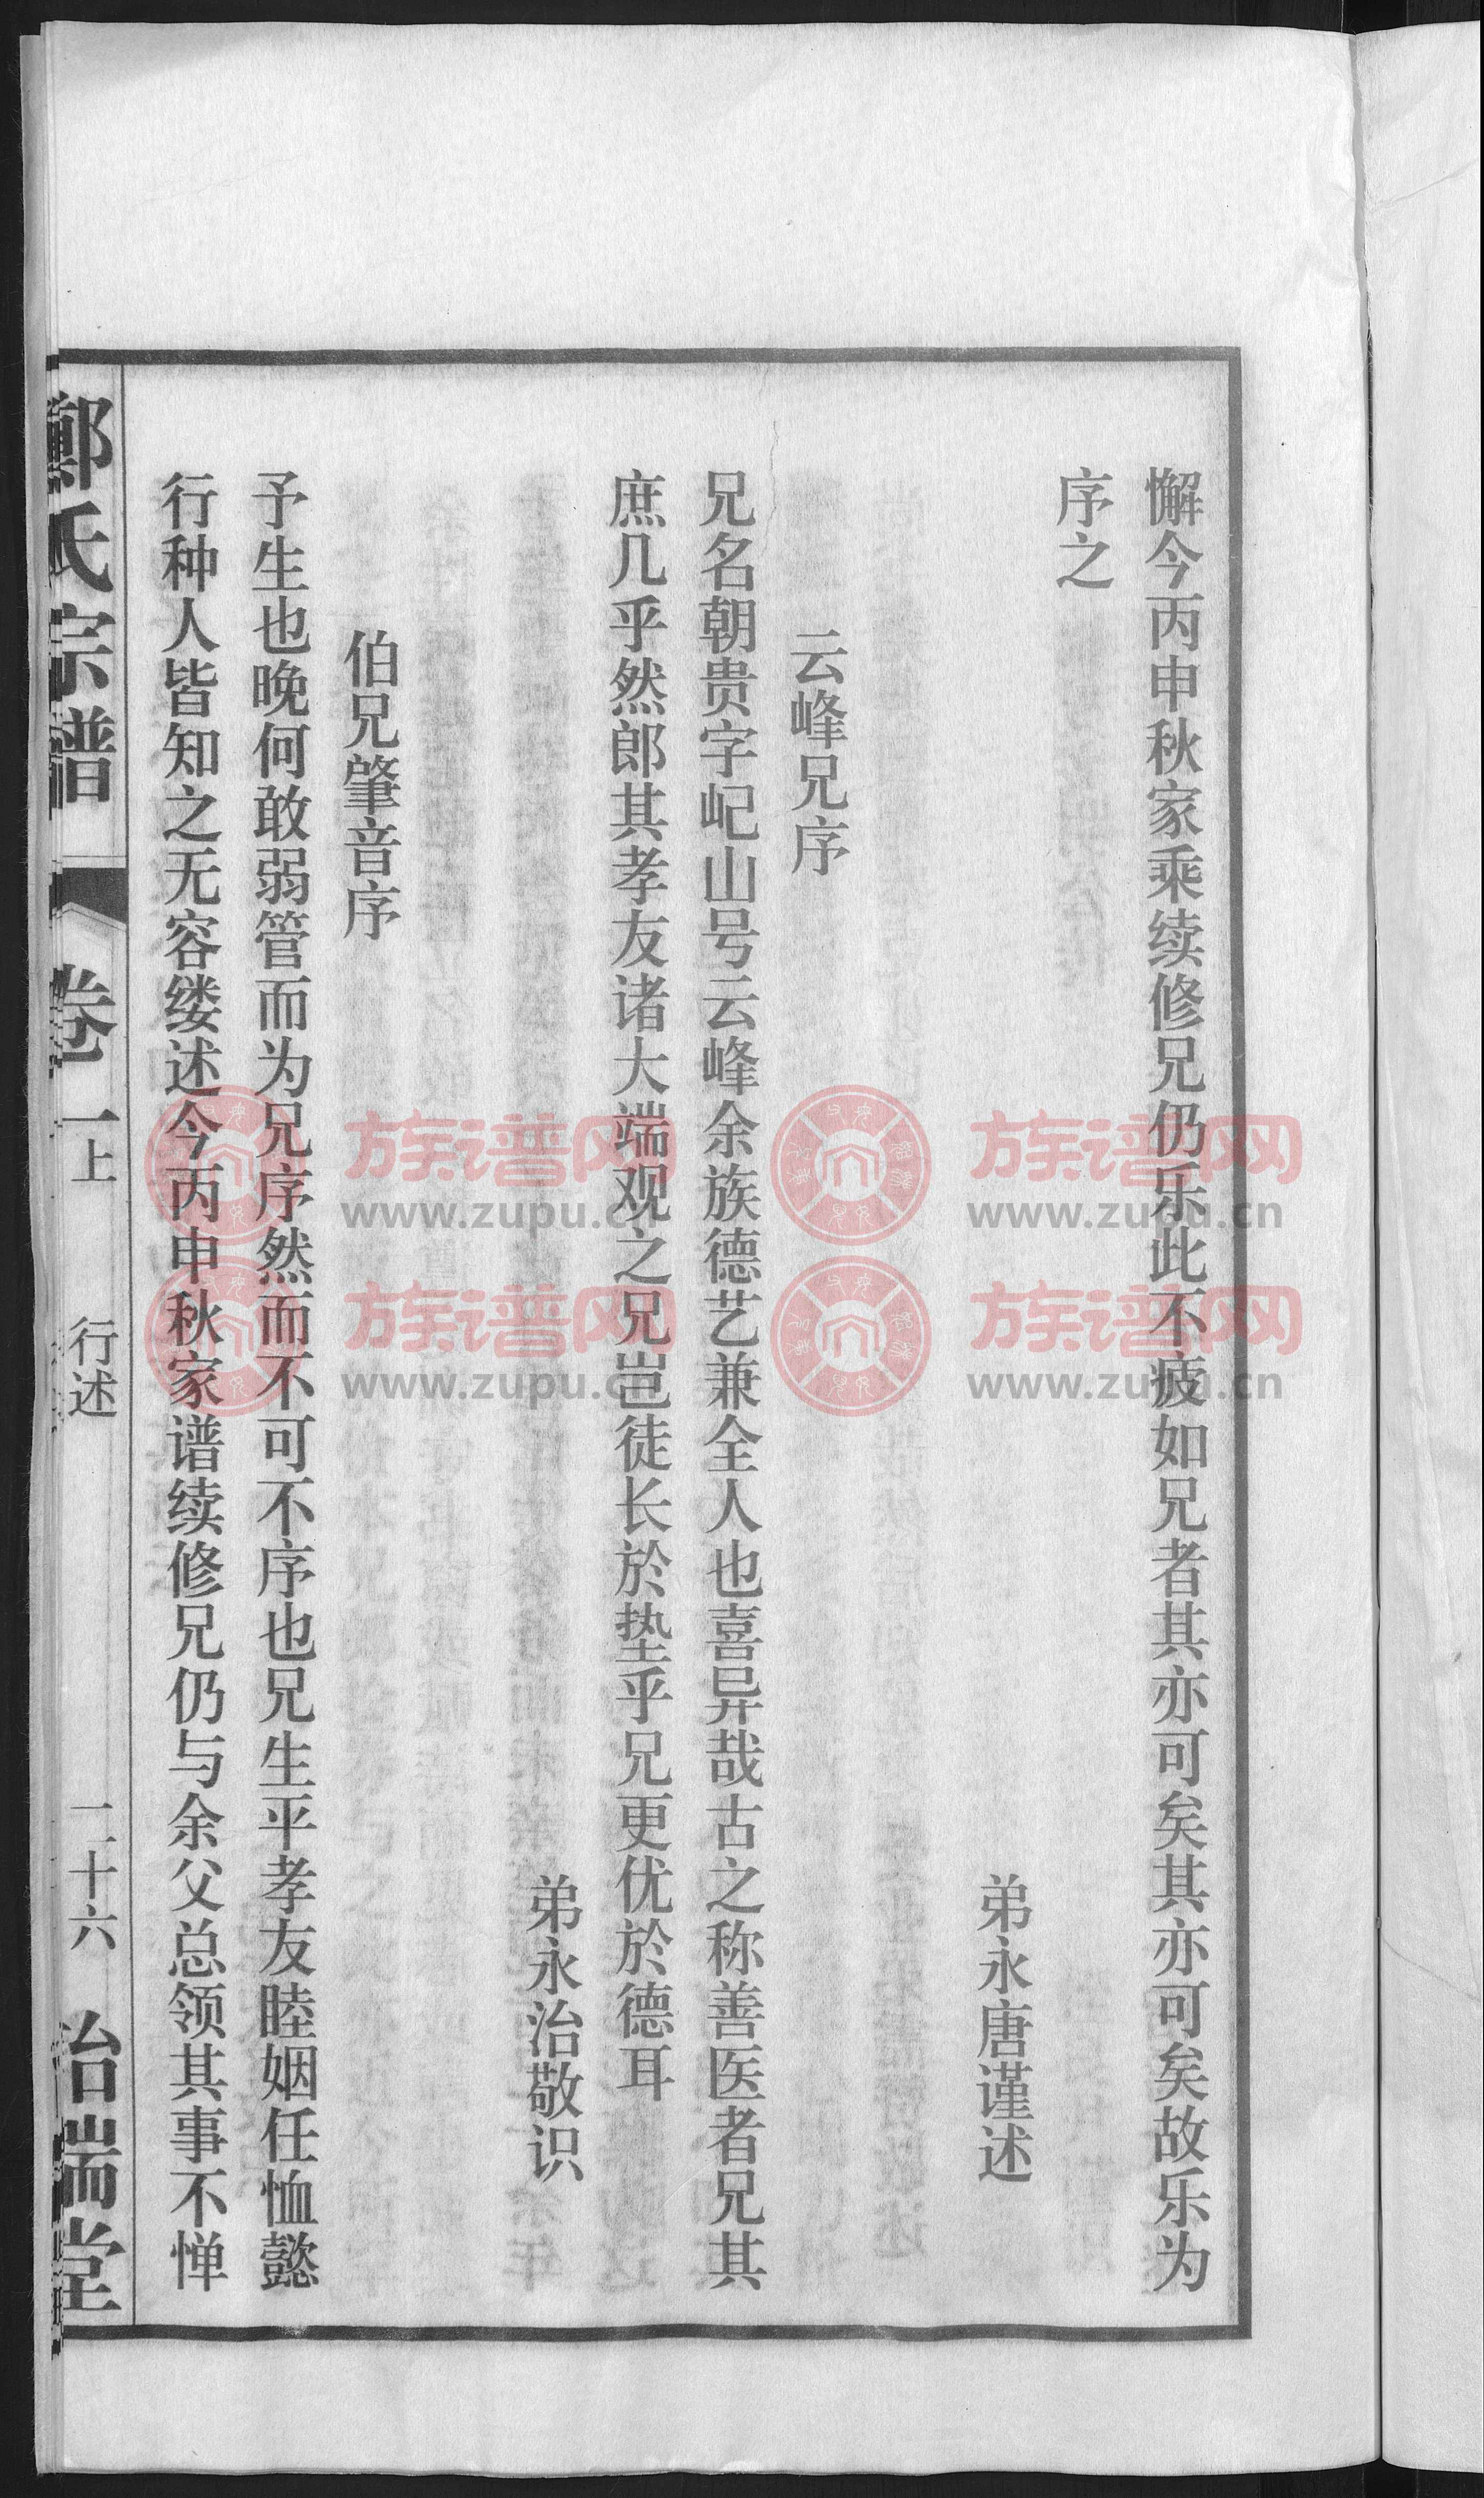 懈今丙申秋家乘续修兄仍乐此不疲如兄者其亦可矣其亦可矣故乐为
序之
弟永唐谨述
云峰兄序
兄名朝贵字屺山号云峰余族德艺兼全人也喜异哉古之称善医者兄其
庶几乎然郎其孝友诸大端观之兄岂徒长於垫乎兄更优於德耳
弟永治敬识
伯兄肇音序
予生也晚何敢弱管而为兄序然而不可不序也兄生平孝友睦姻任恤懿
行种人皆知之无容缕述今丙申秋家谱续修兄仍与余父总领其事不惮
鄭氏宗譜
卷一上
行述
二十六
治瑞堂
族谱网
www.zupu.cn
族谱网
www.zupu.cn
族谱网
www.zupu.cn
族谱网
www.zupu.cn